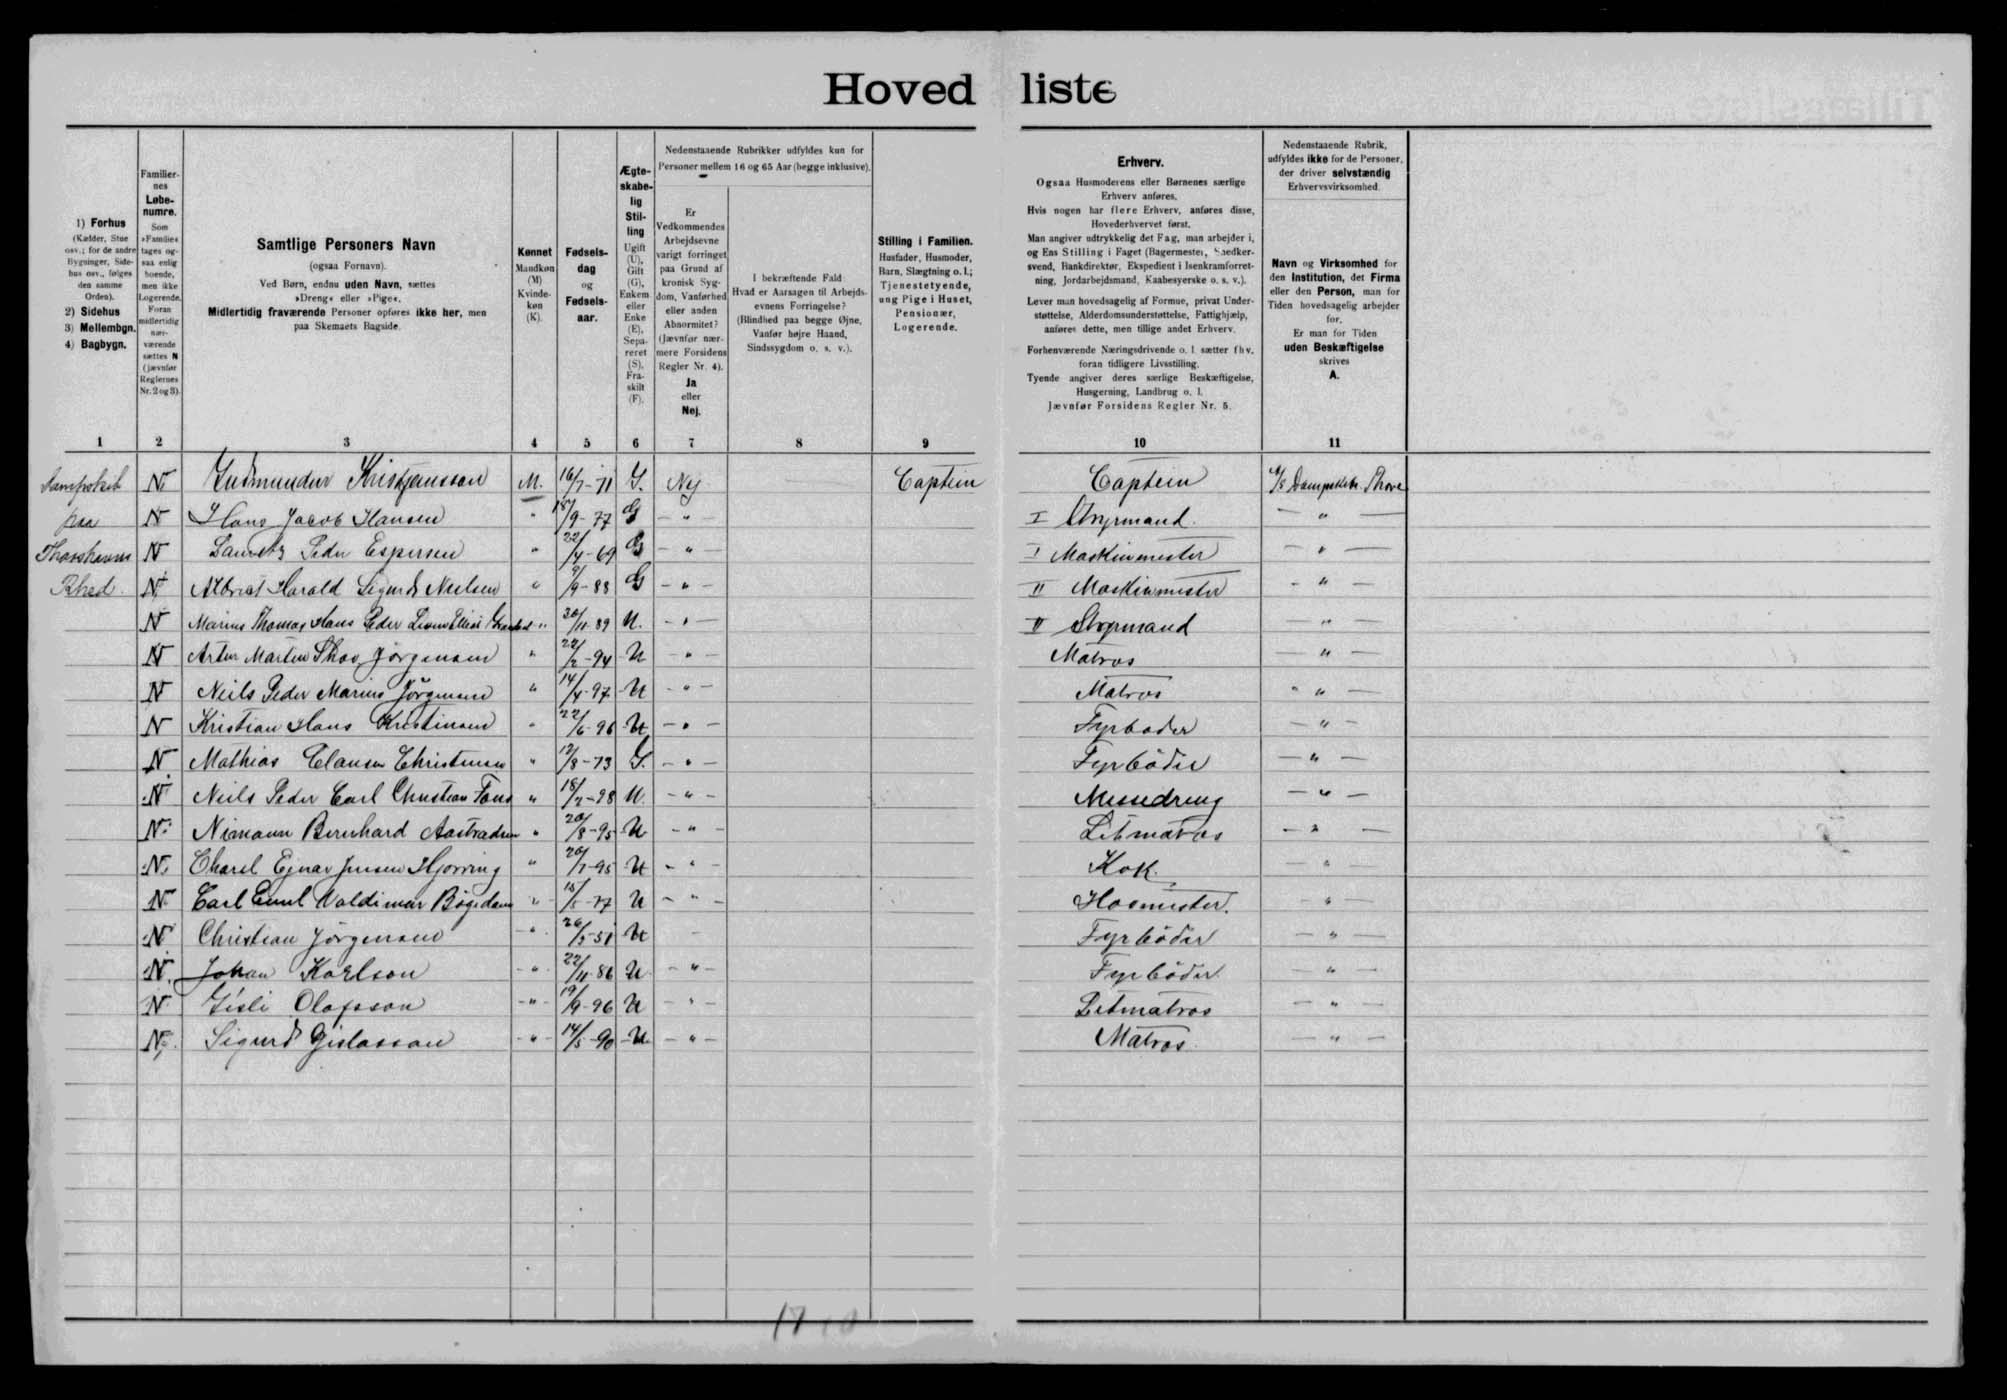 Hovedliste
1) Forhus
(Kælder, Stue osv.; for de andre Bygninger, Sidehus osv., følges den samme Orden).
2) Sidehus
3) Mellembgn.
4) Bagbygn.
Familiernes Løbenumre.
Som »Familie« tages ogsaa enlig boende, men ikke Logerende. Foran midlertidig nærværende sættes N (jævnfør Reglernes Nr. 2 og 3).
Samtlige Personers Navn
(ogsaa Fornavn).
Ved Børn, endnu uden Navn, sættes »Dreng« eller »Pige«.
Midlertidig fraværende Personer opføres ikke her, men paa Skemaets Bagside.
Kønnet
Mandkøn (M)
Kvindekøn (K).
Fødselsdag og Fødselsaar.
Ægteskabelig Stilling
Ugift (U), Gift (G), Enkem. eller Enke (E), Separeret (S), Fraskilt (F).
Nedenstaaende Rubrikker udfyldes kun for Personer mellem 16 og 65 Aar (begge inklusive).
Er Vedkommendes Arbejdsevne varigt forringet paa Grund af kronisk Sygdom, Vanførhed eller anden Abnormitet? (Jævnfør nærmere Forsidens Regler Nr. 4).
Ja eller Nej.
I bekræftende Fald: Hvad er Aarsagen til Arbejdsevnens Forringelse? (Blindhed paa begge Øjne, Vanfør højre Haand, Sindssygdom o. s. v.).
Stilling i Familien.
Husfader, Husmoder, Barn, Slægtning o. l.; Tjenestetyende, ung Pige i Huset, Pensionær, Logerende.
Erhverv.
Ogsaa Husmoderens eller Børnenes særlige Erhverv anføres.
Hvis nogen har flere Erhverv, anføres disse, Hovederhvervet først.
Man angiver udtrykkelig det Fag, man arbejder i, og Ens Stilling i Faget (Bagermester, Snedkersvend, Bankdirektør, Ekspedient i Isenkramforretning, Jordarbejdsmand, Kaabesyerske o. s. v.).
Lever man hovedsagelig af Formue, privat Understøttelse, Alderdomsunderstøttelse, Fattighjælp, anføres dette, men tillige andet Erhverv.
Forhenværende Næringsdrivende o. l. sætter fhv. foran tidligere Livsstilling.
Tyende angiver deres særlige Beskæftigelse, Husgerning, Landbrug o. l.
Jævnfør Forsidens Regler Nr. 5.
Nedenstaaende Rubrik, udfyldes ikke for de Personer, der driver selvstændig Erhvervsvirksomhed.
Navn og Virksomhed for den Institution, det Firma eller den Person, man for Tiden hovedsagelig arbejder for.
Er man for Tiden uden Beskæftigelse skrives A.
1 2 3 4 5 6 7 8 9 10 11
Dampskib N Gudmundur Kristjansson M. 16/7-71 G. Nej Captein Captein Dampskibs. Thore
paa N Hans Jacob Hansen " 18/9-77 G - " - I Styrmand. - " -
Thorshavns N Lauritz Peder Espersen " 22/4-69 G - " - I Maskinmester - " -
Rhed. N Albriet Harald Sigurd Nielsen " 9/9-88 G - " - II Maskinmester - " -
N Marius Thomas Hans Peder " 30/11-89 U. - " - II Styrmand - " -
N Artur Martin Skov Jörgensen " 22/2-94 U - " - Matros - " -
N Neils Peder Marius Jörgensen " 14/4-97 U - " - Matros " " -
N Kristian Hans Kristinsen " 22/6-96 U - " - Fyrboder - " -
N Mathias Clausen Christensen " 12/8-73 G. - " - Fyrböder - " -
N Neils Peder Carl Christian Fons " 18/2-98 U. - " - Messedreng - " -
N Nimann Bernhard " 20/8-95 U - " - Letmatros - " -
N Charel Ejnar Jensen Hjorring " 26/7-95 U - " - Kok. - " -
N Carl Emil Valdimar Bögedam " 15/5-77 U - " - Hovmester. - " -
N Christian Jörgensen - " - 26/5-51 U - Fyrböder - " -
N Johan Karlson - " - 22/11-86 U - " - Fyrböder. - " -
N Gísli Olafsson - " - 19/9-96 U - " - Letmatros - " -
N Sigurd Gislasson - " - 14/5-90 U. - " - Matros. - " -
17